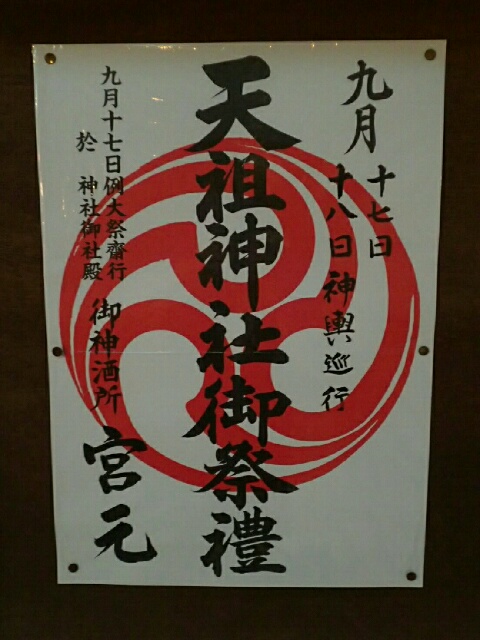 九月
十七日
十八日
神輿巡行
天祖神社御祭禮
九月十七日例大祭齋行
於 神社御社殿
御神酒所
宮元